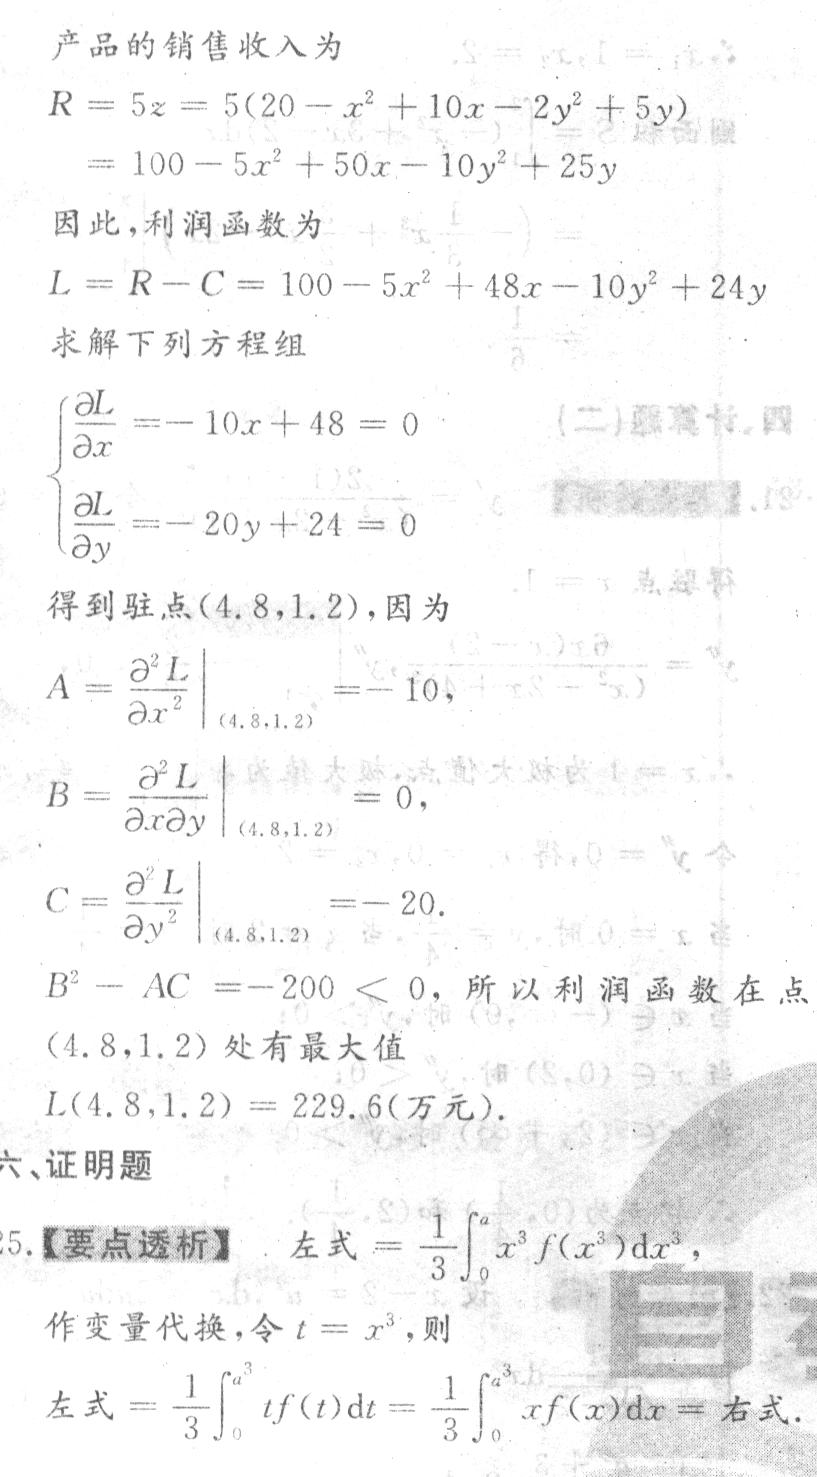 产品的销售收入为
R = 5z = 5(20 − x² + 10x − 2y² + 5y)
= 100 − 5x² + 50x − 10y² + 25y
因此,利润函数为
L = R − C = 100 − 5x² + 48x − 10y² + 24y
求解下列方程组
∂L/∂x = − 10x + 48 = 0
∂L/∂y = − 20y + 24 = 0
得到驻点(4.8,1.2),因为
A = ∂²L/∂x² |(4.8,1.2) = − 10,
B = ∂²L/∂x∂y |(4.8,1.2) = 0,
C = ∂²L/∂y² |(4.8,1.2) = − 20.
B² − AC = − 200 < 0, 所以利润函数在点
(4.8,1.2) 处有最大值
L(4.8,1.2) = 229.6(万元).
六、证明题
25.【要点透析】 左式 = 1/3 ∫₀^a x³ f(x³)dx³,
作变量代换,令 t = x³,则
左式 = 1/3 ∫₀^(a³) tf(t)dt = 1/3 ∫₀^(a³) xf(x)dx = 右式.